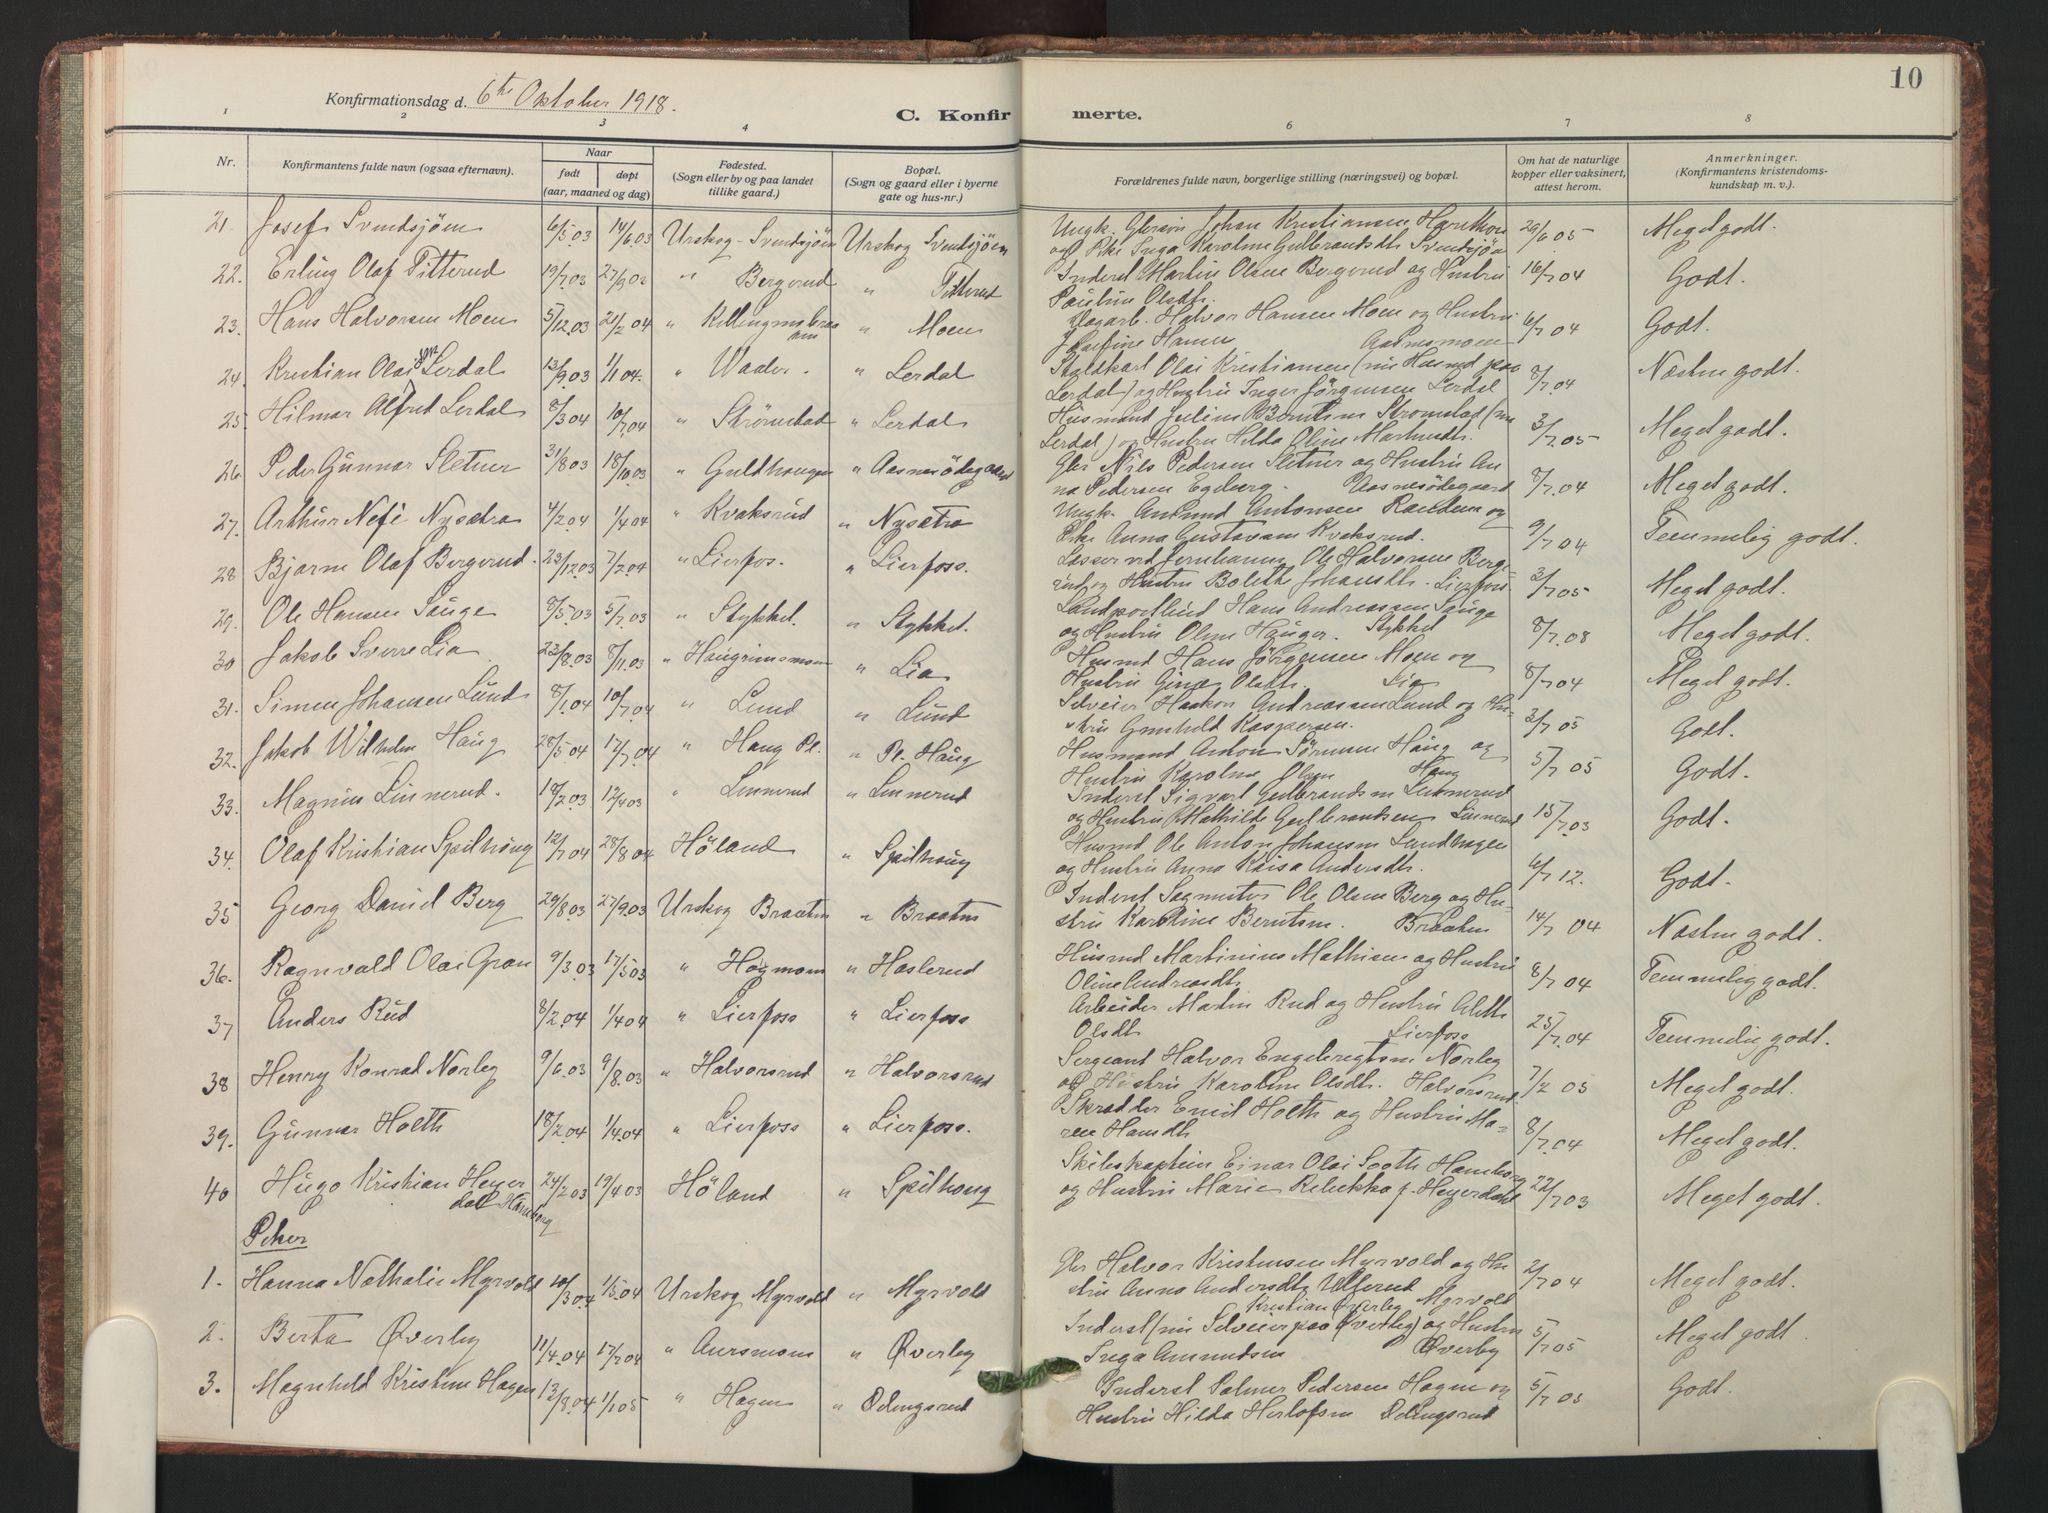 10
Konfirmationsdag d. 6te Oktober 1918.
C. Konfirmerte.
1 2 3 4 6 7 8
Nr.
Konfirmantens fulde navn (ogsaa efternavn).
Naar
født døpt
(aar, maaned og dag)
Fødested.
(Sogn eller by og paa landet
tillike gaard.)
Bopæl.
(Sogn og gaard eller i byerne
gate og hus-nr.)
Forældrenes fulde navn, borgerlige stilling (næringsvei) og bopæl.
Om hat de naturlige
kopper eller vaksinert,
attest herom.
Anmerkninger.
(Konfirmantens kristendoms-
kundskap m. v.).
21. Josef Svendsjöen 6/5.03 14/6.03 Urskog - Svendsjöen Urskog Svendsjöen Ungk. Johan Kristiansen 29/6 05 Meget godt.
og Pike Inga Karoline Gulbrandsdtr Svendsjöen
22. Erling Olaf Titterud 19/7.03 27/9 03 " Bergerud " Titterud Inderst Martin Olsen Bergerud og Hustru 16/7 04 Godt.
Pauline Olsdtr.
23. Hans Halvorsen Moen 5/12.03 21/2 04 " " Moen Dagarb. Halvor Hansen Moen og Hustru 6/7 04 Godt.
Josefine Hansen Aasmsmoen
24. Kristian Olaisen Lerdal 13/9.03 1/1 04. " Waaler. " Lerdal Olai Kristiansen (nu Husmd paa 8/7 04 Næsten godt.
Lerdal) og Hustru Inger Jörgensen Lerdal
25. Hilmar Alfred Lerdal 8/3 04 10/7.04 " Strömstad " Lerdal Husmand Julius Berntsen Strömstad (nu 3/7.05 Meget godt.
Lerdal) og Hustru Hilda Oline Martinsdtr.
26. Peder Gunnar Sletner 31/8.03 18/10.03 " Guldhaugen " Aasnesödegaard Gbr Nils Pedersen Sletner og Hustru An- 8/7.04 Meget godt.
na Pedersen Egeberg. Aasnesödegaard
27. Arthur Nefi Nysætra 4/2.04 1/4 04 " Kvaksrud " Nysætra Ungk. Antonsen og 9/7 04 Temmelig godt.
Pike Anna Gustavsen Kvaksrud.
28 Bjarne Olaf Bergerud. 23/12.03 7/2.04 " Lierfos. " Lierfoss. Lasser ved Jernbanen Ole Halvorsen Berg- 3/7 05 Meget godt.
erud og Hustru Bolette Johansdtr. Lierfoss
29. Ole Hansen Sauge 8/5.03 5/7.03 " Stykket. " Stykket. Landpostbud Hans Andreassen Sauge 8/7.08 Meget godt.
og Hustru Oline Hauger. Stykket
30 Jakob Sverre Lia 23/8.03 8/11.03 " Haugrimsmoen " Lia Husmd Hans Jörgensen Moen og 8/7 04 Meget godt.
Hustru Gina Olsdtr. Lia
31. Simen Johansen Lund 8/1.04 10/7.04 " Lund " Lund Selveier Haakon Andreassen Lund og Hu- 3/7 05 Godt.
stru Gunhild Kaspersen.
32. Jakob Wilhelm Haug 28/5.04 17/7.04 " Haug Pl. " Pl. Haug Husmand Anton Sörensen Haug og 5/7 05 Godt.
Hustru Karoline Olsen Haug
33. Magnus Linnerud. 18/2.03 12/4 03 " Linnerud " Linnerud Inderst Sigvart Gulbrandsen Linnerud 15/7.03 Godt.
og Hustru Mathilde Gulbrandsen Linnerud
34. Olaf Kristian Spilhaug 12/7 04 28/8 04 Höland " Spilhaug Husmd Ole Anton Johansen Sandhagen 6/7 12. Godt.
og Hustru Anna Kaisa Andersdtr.
35 Georg Daniel Berg 29/8.03 27/9.03 Urskog Braaten " Braaten Inderst Sagmester Ole Olsen Berg og Hu- 14/7 04 Næsten godt.
stru Karoline Berntsen. Braaten
36. Ragnvald Olai Gran 9/3.03 17/5 03 " Hogmoen " Haslerud Husmd Martinius Mathisen og Hustru 8/7 04 Temmelig godt.
Oline Andreasdtr
37 Anders Rud 8/2.04 1/4 04 " Lierfoss " Lierfoss Arbeider Martin Rud og Hustru Alette 25/7.04 Temmelig godt.
Olsdtr Lierfoss
38 Henry Konrad Norley 9/6.03 9/8.03 " Halvorsrud " Halvorsrud Sergeant Halvor Engebregtsen Norley 7/2 05 Meget godt.
og Hustru Karoline Olsdtr. Halvorsrud
39. Gunnar Holth 18/2.04 1/4.04 " Lierfoss " Lierfoss. Skrædder Emil Holth og Hustru Ma- 8/7.04 Meget godt.
ren Hansdtr
40 Hugo Kristian Heyer 24/2.03 19/4.03 Höland " Spilhaug Skibskaptein Einar Olai Sooth Haneborg 22/7 03 Meget godt.
dal Haneborg og Hustru Marie Rebekka f. Heyerdahl
Piker
1. Hanna Nathalie Myrvold 10/3.04 1/5.04 Urskog Myrvold " Myrvold Gbr Halvor Kristensen Myrvold og Hu- 2/7 04 Meget godt.
stru Anna Andersdtr Ullerud Myrvold
2. Berta Øverby 11/4.04 17/7 04 " Aursmoen " Øverby Kristian Øverby
Inderst (nu Selveier paa Øverby) og Hustru 5/7 05 Meget godt.
Inga Amundsen Øverby
3. Magnhild Kristine Hagen 13/8.04 1/1.05 " Hagen " Ödingsrud Inderst Palmer Pedersen Hagen og 5/7 05 Godt.
Hustru Hilda Herlofsen Ödingsrud